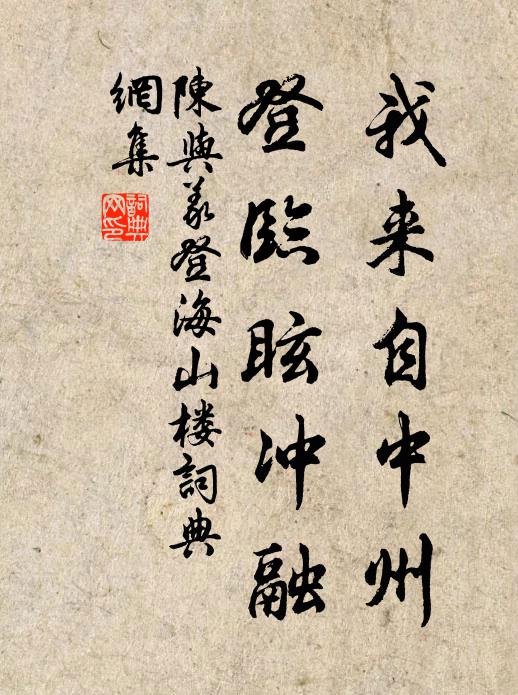 我来自中州
登臨眩冲融
陳與義登海山楼詞典
網集
詞典網印